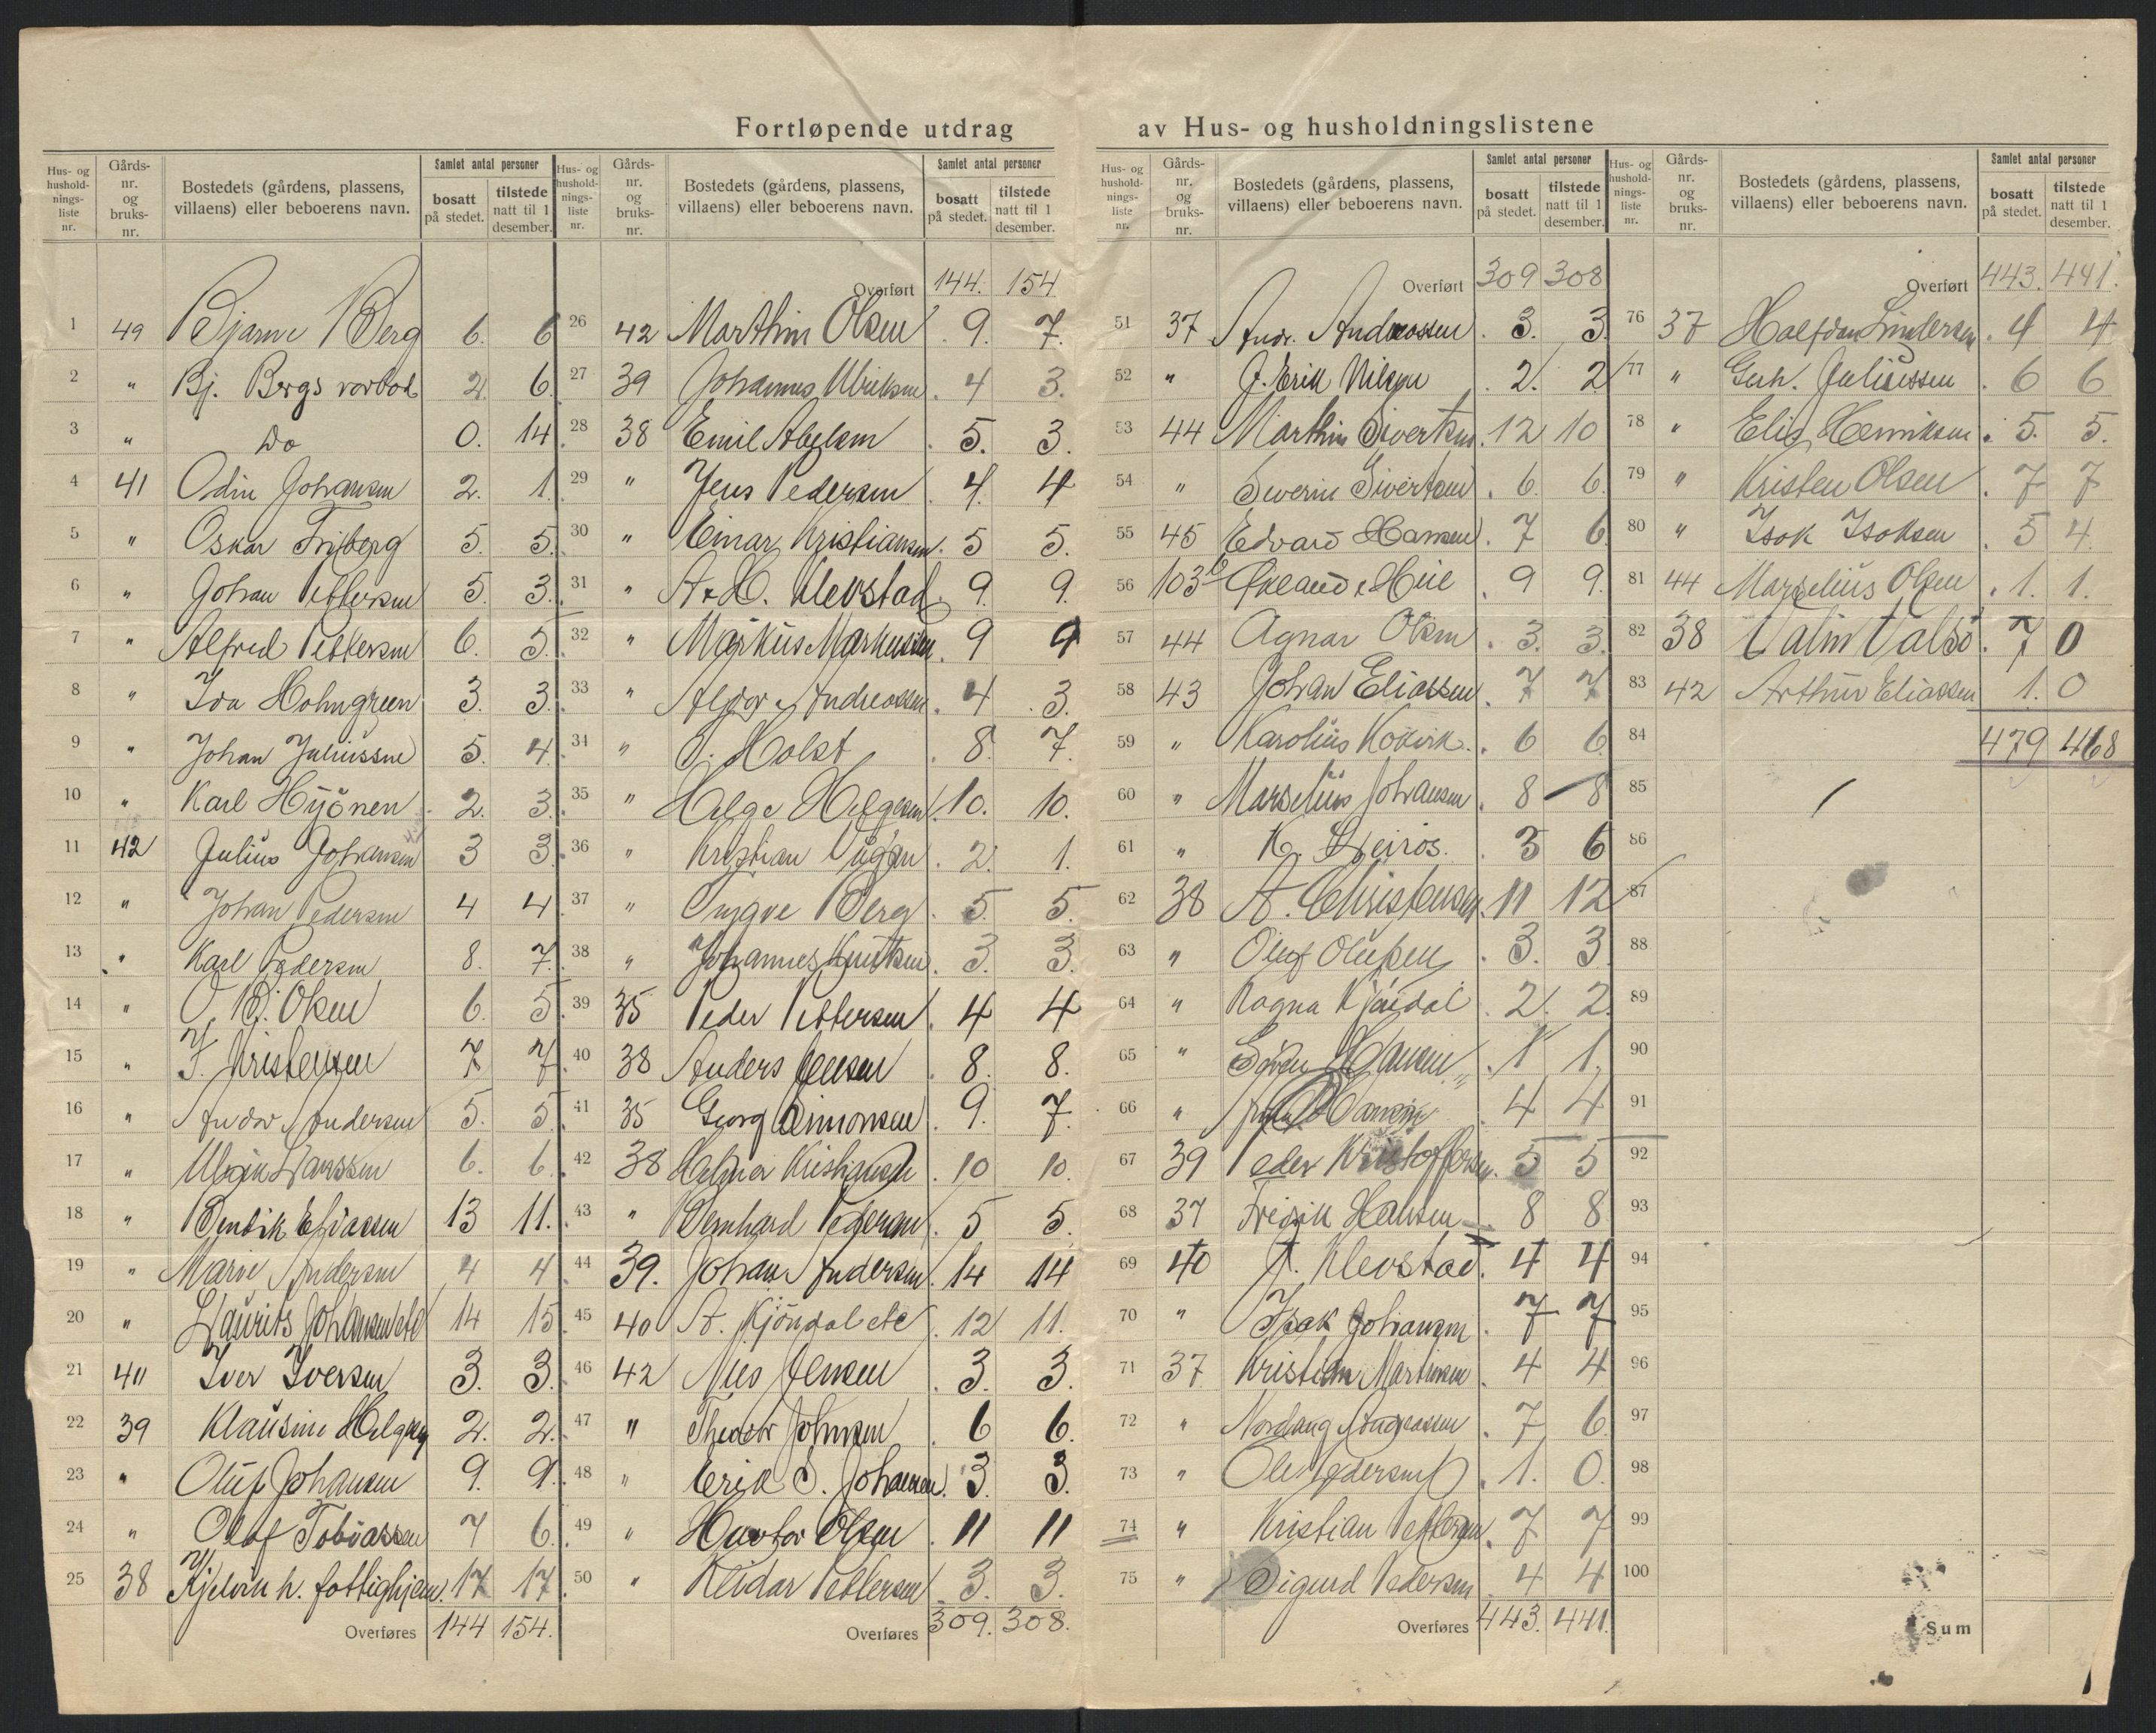 Fortløpende utdrag av Hus- og husholdningslistene
Hus- og husholdnings- liste nr.
Gårds- nr. og bruks- nr.
Bostedets (gårdens, plassens, villaens) eller beboerens navn.
Samlet antal personer
bosatt på stedet.
tilstede natt til 1 desember.
1 49 Bjarne Berg 6. 6
2 " Bj. Bergs rorbod 2 6.
3 " Do 0. 14.
4 41 Odin Johansen 2. 1.
5 " Oskar Friberg 5. 5.
6 " Johan Pettersen 5. 3.
7 " Alfred Pettersen 6. 5.
8 " Ida Holmgreen 3. 3.
9 " Johan Juliussne 5. 4.
10 " Karl Hyönen 2. 3.
11 42 Julius Johansen 3 3.
12 " Johan Pedersen 4 4.
13 " Karl Pedersen 8. 7.
14 " O. Bj. Olsen 6. 5.
15 " J. Kristensen 7 7.
16 " Andor Andersen 5. 5.
17 " Ulrik Larssen 6. 6.
18 " Bendik Eliassen 13 11.
19 " Marie Andersen 4 4
20 " Laurits Johansen etc 14 15
21 40 Iver Iversen 3. 3.
22 39 Klausine Helgesen 2. 2.
23 " Oluf Johansen 9. 9.
24 " Olaf Tobiassen 7 6.
25 38 Kjelvik h. fattighjem. 17 17.
Overføres 144 154.
Hus- og husholdnings- liste nr.
Gårds- nr. og bruks- nr.
Bostedets (gårdens, plassens, villaens) eller beboerens navn.
Samlet antal personer
bosatt på stedet.
tilstede natt til 1 desember.
Overført 144. 154
26 42 Marthin Olsen 9. 7.
27 39 Johannes Ulriksen 4 3.
28 38 Emil Abelsen 5. 3.
29 " Jens Pedersen 4. 4
30 " Einar Kristiansen 5 5.
31 " A & H. Klevstad 9. 9.
32 " Markus Markussen 9 9
33 " Andreassen 4 3.
34 " Holst 8. 7.
35 " Helge Helgesen 10. 10.
36 " Kristian 2. 1.
37 " Trygve Berg 5. 5.
38 " Johannes Knutsen 3. 3.
39 35 Peder Pettersen 4 4
40 38 Anders Jensen 8. 8.
41 35 Georg Simonsen 9. 7.
42 38 Halmar Kristiansen 10 10.
43 " Bernhard Pedersen 5 5.
44 39. Johan Andersen 14 14
45 40 A. Kjöndal etc 12 11.
46 42 Nils Jensen 3. 3.
47 " Theodor Johnsen 6 6.
48 " Erik S. Johansen 3. 3.
49 " Olsen 11 11
50 " Reidar Pettersen 3. 3.
Overføres 309. 308.
Hus- og husholdnings- liste nr.
Gårds- nr. og bruks- nr.
Bostedets (gårdens, plassens, villaens) eller beboerens navn.
Samlet antal personer
bosatt på stedet.
tilstede natt til 1 desember.
Overført 309 308
51 37 Andr. Andreassen 3. 3.
52 " J. Erik Nilsen 2. 2
53 44 Marthin Sivertsen 12 10
54 " Severin Sivertsen 6. 6.
55 45 Edvard Hansen 7 6.
56 103 9 9.
57 44 Agnar Olsen 3. 3.
58 43 Johan Eliassen 7 7
59 " Karolius Kokvik 6 6
60 " Marselius Johansen 8 8
61 " K. Leiros. 3 6
62 38 A. Christensen 11 12
63 " Oluf Olufsen 3. 3.
64 " Ragna Kjöndal 2. 2.
65 " Hansen 1 1.
66 " Hansen 4 4
67 39 Peder Kristoffersen 5 5
68 37 Fredrik Hansen 8 8
69 40 A. Klevstad 4 4
70 " Isak Johansen 7 7
71 37 Kristian Martinsen 4 4
72 " Nordang Andreassen 7 6.
73 " Ole Pedersen 1. 0.
74 " Kristian Pettersen 7 7
75 " Sigurd Pedersen 4 4
Overføres 443. 441.
Hus- og husholdnings- liste nr.
Gårds- nr. og bruks- nr.
Bostedets (gårdens, plassens, villaens) eller beboerens navn.
Samlet antal personer
bosatt på stedet.
tilstede natt til 1 desember.
Overført 443. 441.
76 37 Halfdan 4 4
77 " Gerh. Juliussen 6 6
78 " Elis Henriksen 5. 5.
79 " Kristen Olsen 7 7
80 " Isak Isaksen 5 4.
81 44 Marselius Olsen 1. 1.
82 38 Valin Valsö 7 0
83 42 Arthur Eliassen 1. 0
84 479 468
85
86
87
88
89
90
91
92
93
94
95
96
97
98
99
100
Sum